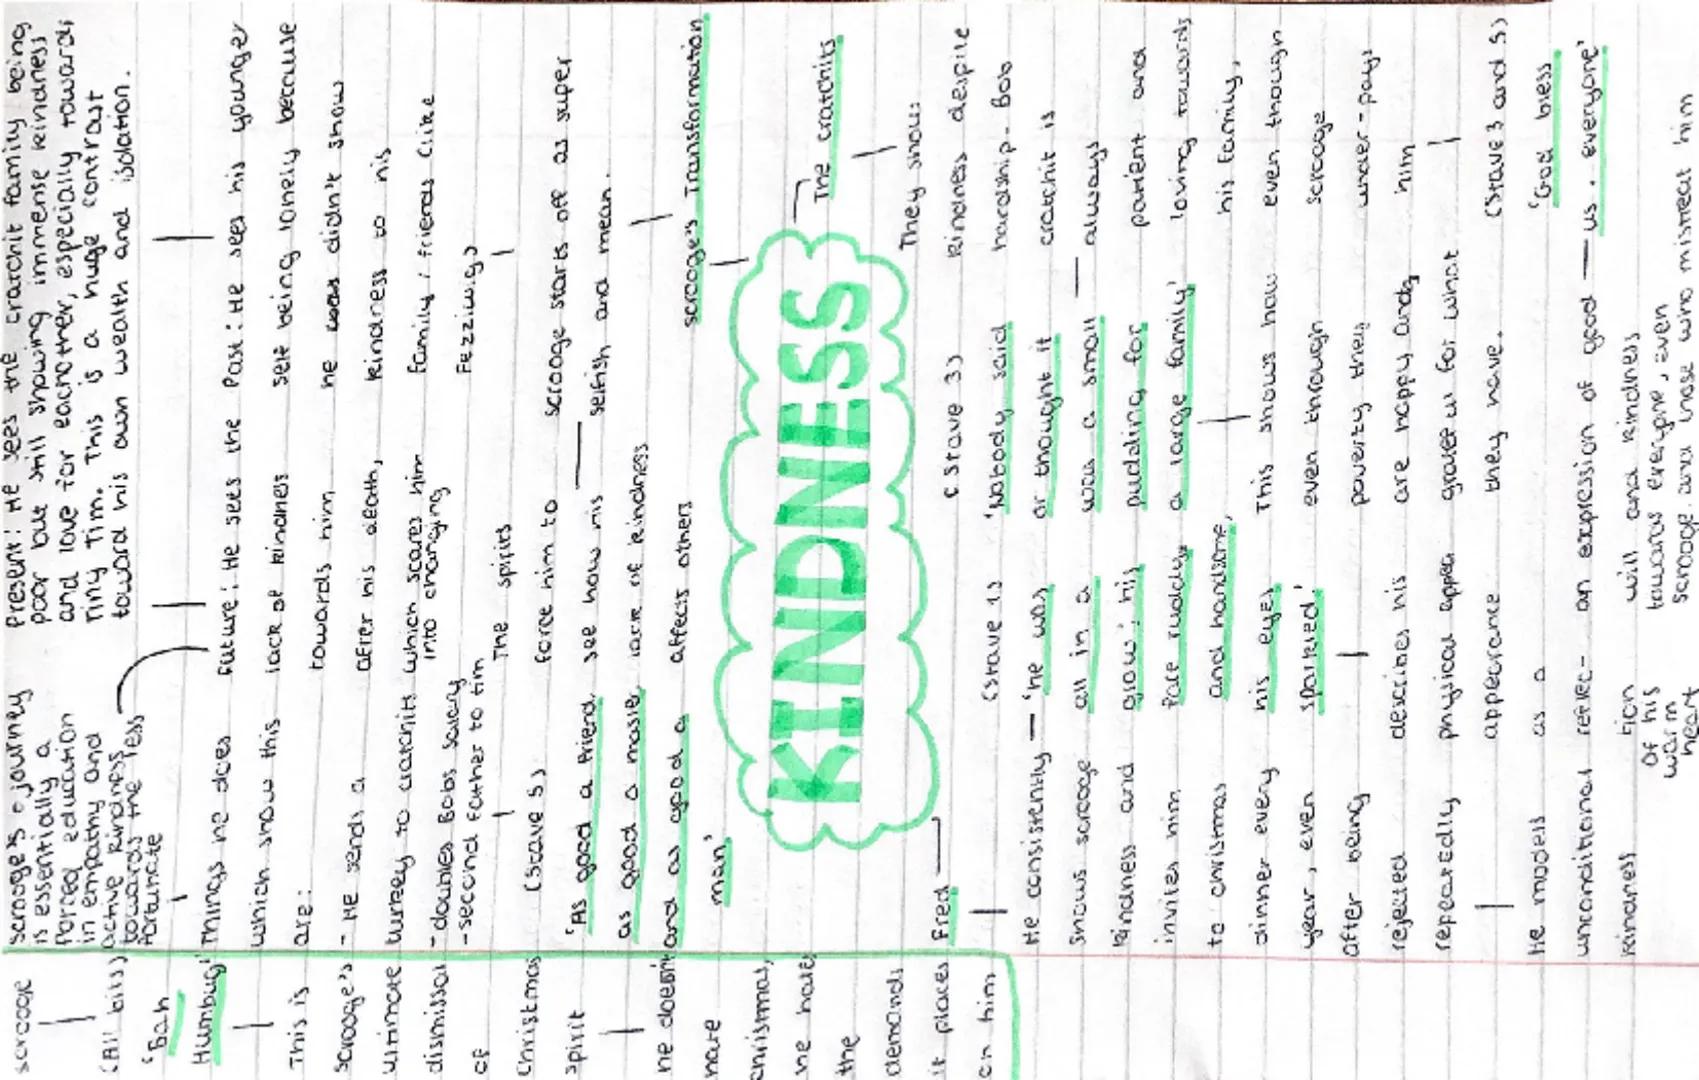 scrooge
(All bits)
'Bah
Humbug'
This is
scrooge's
ultimate
dismissal
of
Christmas
spirit
he doesn't
hate
christmas,
he hates
the
demands
it places
on him
scrooge's journey
is essentially a
forced education
in empathy and
active kindness
towards the less
fortunate
Things he does
which show this
are:
- He sends a
turkey to cratchits
- doubles Bobs salary
- second father to tim
(Stave 5)
'As good a friend,
as good a master,
and as good a
man'
Present: He sees the cratchit family being
poor but still showing immense kindness
and love for eachother, especially towards
Tiny Tim. This is a huge contrast
toward his own wealth and isolation.
Future: He sees the
lack of kindness
towards him
after his death,
which scares him
into changing
Past: He sees his younger
self being lonely because
he didn't show
kindness to his
family / friends (like
Fezziwig)
The spirits
force him to
see how his
lack of kindness
affects others
scrooge starts off as super
selfish and mean.
scrooge's Transformation
KINDNESS
The cratchits
They show
kindness despite
hardship - Bob
cratchit is
always
patient and
loving towards
his family,
even though
scrooge
under-pays
him
(Stave 3 and 5)
'God bless
us, everyone'
(Stave 3)
'Nobody said
or thought it
was a small
pudding for
a large family'
This shows how
even through
poverty they
are happy and
grateful for what
they have.
Fred
He consistently
shows scrooge
kindness and
invites him
to christmas
dinner every
year, even
after being
rejected
repeatedly
He models
unconditional
kindness
(Stave 1)
'he was
all in a
glow; his
face ruddy
and handsome;
his eyes
sparkled'
describes his
physical
appearance
as a
reflec-
tion
of his
warm
heart
an expression of good
will and kindness
towards everyone, even
scrooge and those who mistreat him